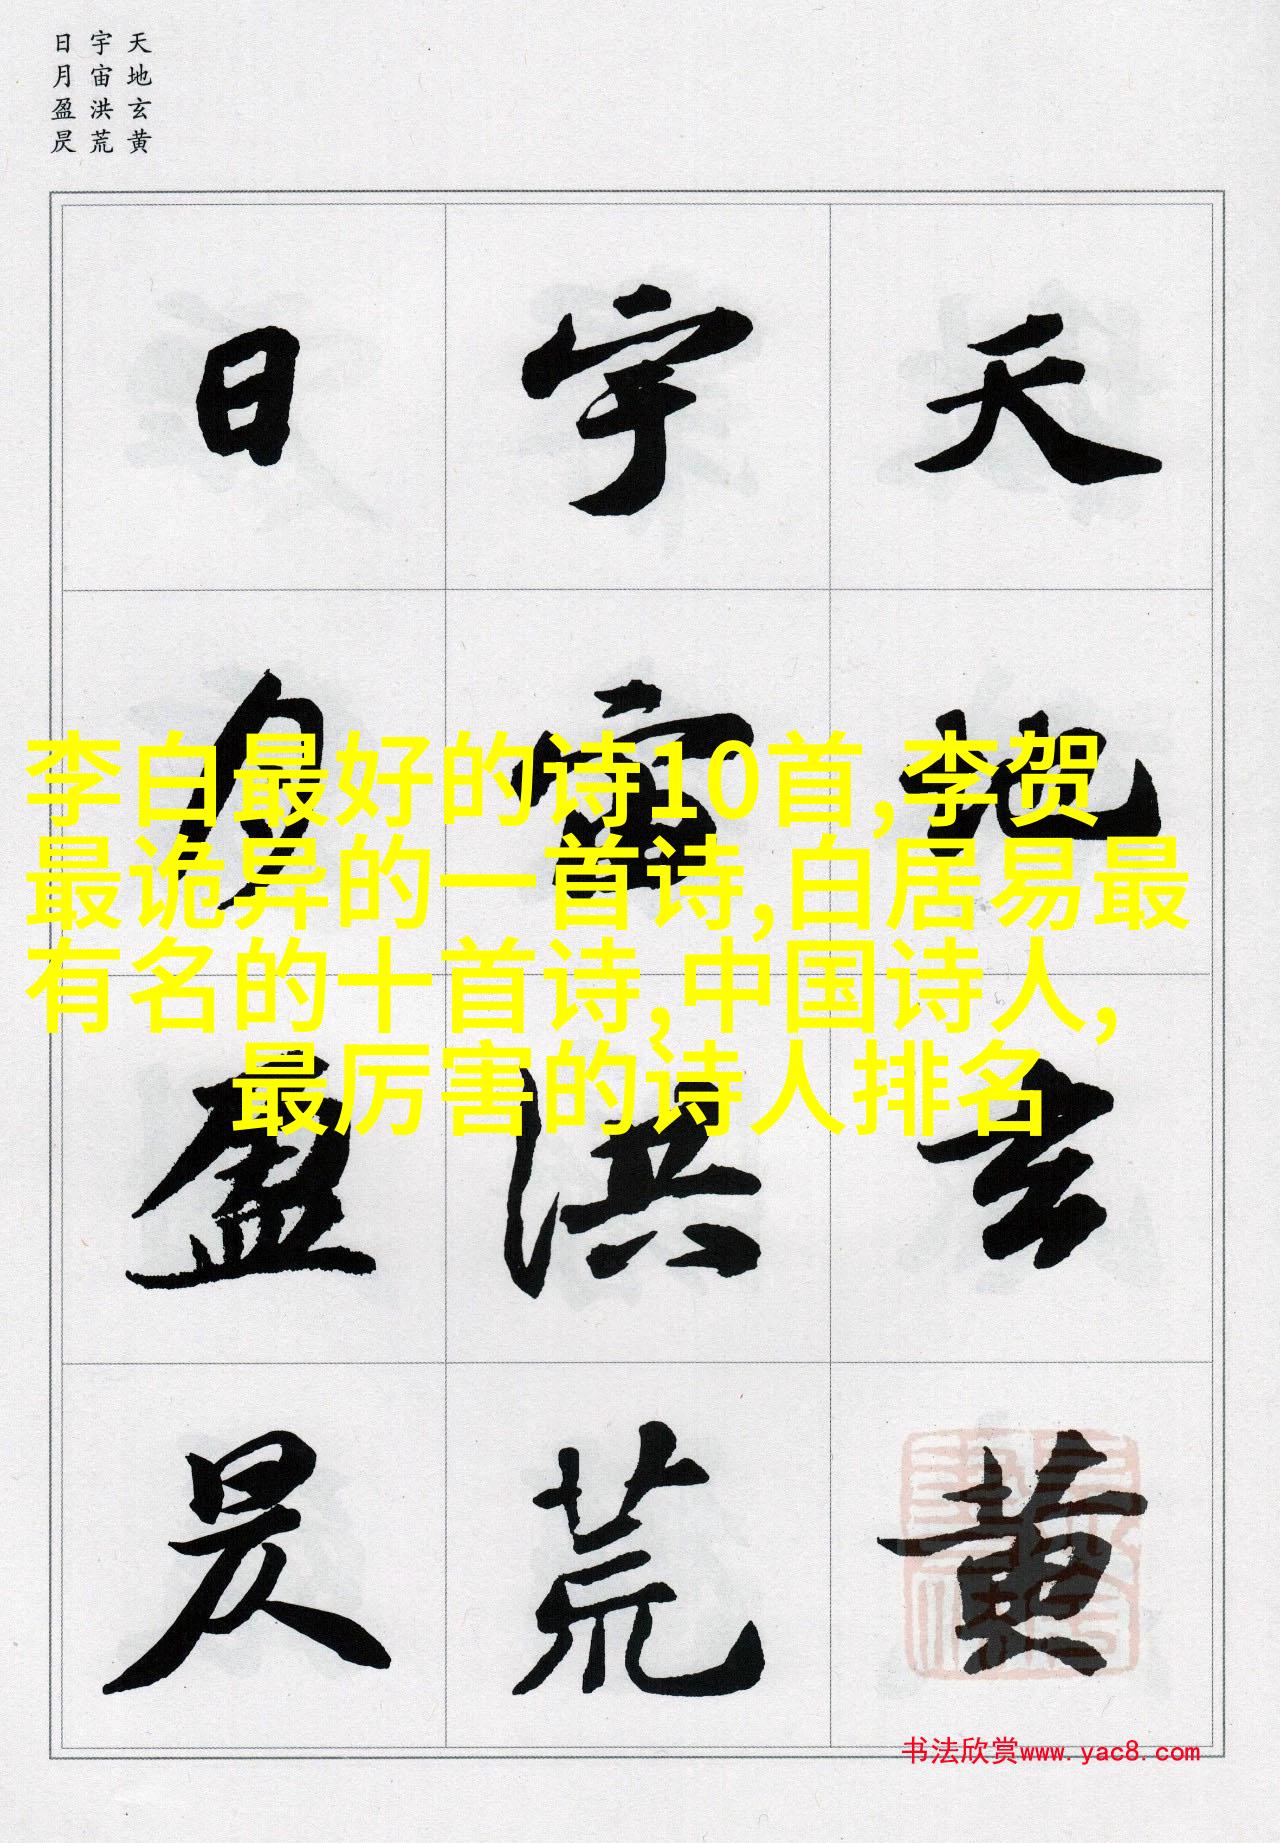 天地玄黄
宇宙洪荒
日月盈昃
天地玄黄
宇宙洪荒
日月盈昃
李白最好的诗10首,李贺
最诡异的一首诗,白居易最
有名的十首诗,中国诗人,
最厉害的诗人排名
书法欣赏www.yac8.com